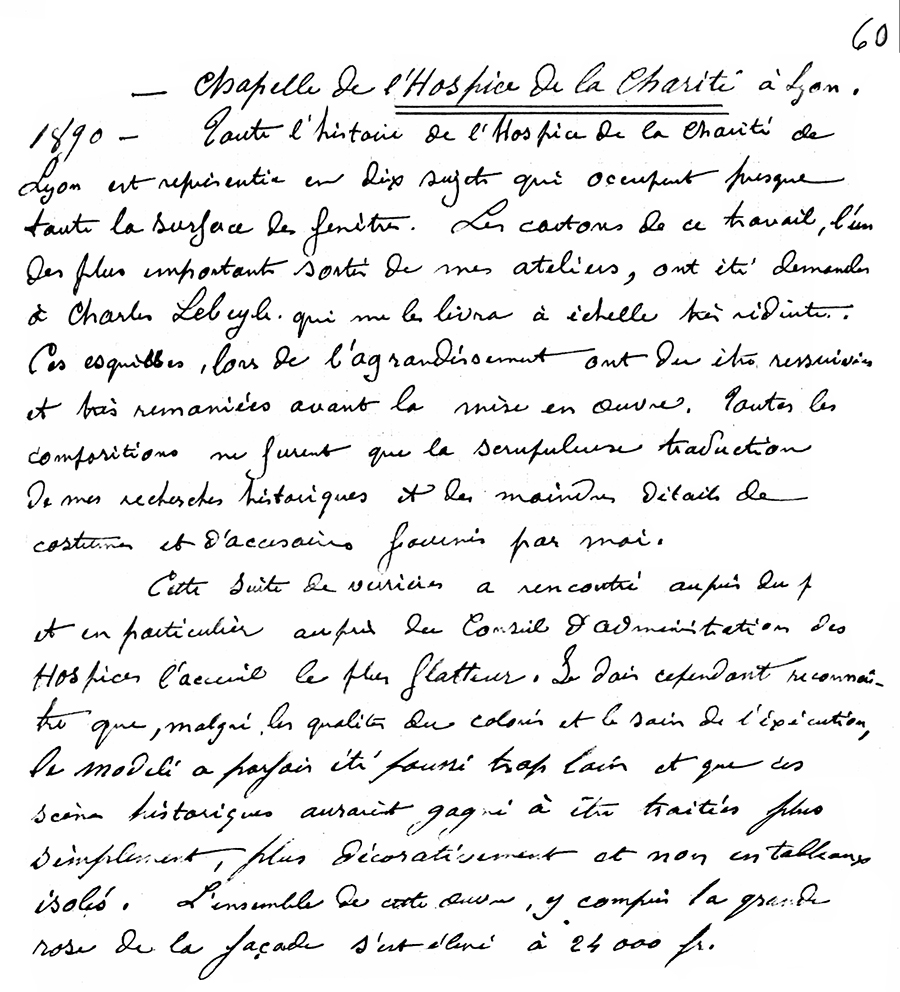 60
— Chapelle de l'Hospice de la Charité à Lyon.
1890 — Toute l'histoire de l'Hospice de la Charité de
Lyon est représentée en dix sujets qui occupent presque
toute la surface des fenêtres. Les cartons de ce travail, l'un
des plus importants sortis de mes ateliers, ont été demandés
à Charles Lebayle qui me les livra à échelle très réduite.
Ces esquisses, lors de l'agrandissement ont du être ressuivies
et très remaniées avant la mise en œuvre. Toutes les
compositions ne furent que la scrupuleuse traduction
de mes recherches historiques et des moindres détails de
costumes et d'accessoires fournis par moi.
Cette suite de verrières a rencontré auprès du p
et en particulier auprès du Conseil d'administration des
Hospices l'accueil le plus flatteur. Je dois cependant reconnaî-
tre que, malgré les qualités du coloris et le soin de l'éxécution,
le modelé a parfois été poussé trop loin et que ces
scènes historiques auraient gagné à être traitées plus
simplement, plus décorativement et non en tableaux
isolés. L'ensemble de cette œuvre, y compris la grande
rose de la façade s'est élevé à 24 000 fr.